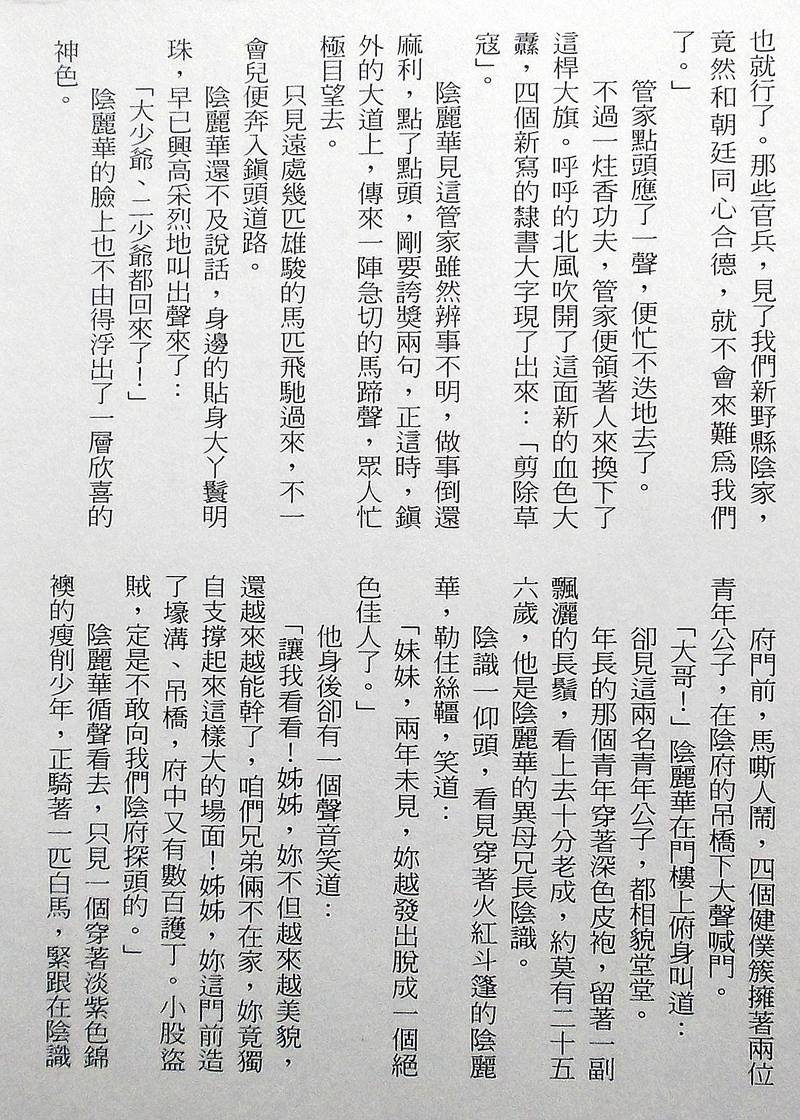 也就行了。那些官兵，見了我們新野縣陰家，
竟然和朝廷同心合德，就不會來難爲我們
了。」
管家點頭應了一聲，便忙不迭地去了。
不過一炷香功夫，管家便領著人來換下了
這桿大旗。呼呼的北風吹開了這面新的血色大
纛，四個新寫的隸書大字現了出來：「剪除草
寇」。
陰麗華見這管家雖然辨事不明，做事倒還
麻利，點了點頭，剛要誇獎兩句，正這時，鎮
外的大道上，傳來一陣急切的馬蹄聲，眾人忙
極目望去。
只見遠處幾匹雄駿的馬匹飛馳過來，不一
會兒便奔入鎮頭道路。
陰麗華還不及說話，身邊的貼身大丫鬟明
珠，早已興高采烈地叫出聲來了：
「大少爺、二少爺都回來了！」
陰麗華的臉上也不由得浮出了一層欣喜的
神色。
府門前，馬嘶人鬧，四個健僕簇擁著兩位
青年公子，在陰府的吊橋下大聲喊門。
「大哥！」陰麗華在門樓上俯身叫道：
卻見這兩名青年公子，都相貌堂堂。
年長的那個青年穿著深色皮袍，留著一副
飄灑的長鬚，看上去十分老成，約莫有二十五
六歲，他是陰麗華的異母兄長陰識。
陰識一仰頭，看見穿著火紅斗篷的陰麗
華，勒住絲韁，笑道：
「妹妹，兩年未見，妳越發出脫成一個絕
色佳人了。」
他身後卻有一個聲音笑道：
「讓我看看！姊姊，妳不但越來越美貌，
還越來越能幹了，咱們兄弟倆不在家，妳竟獨
自支撐起來這樣大的場面！姊姊，妳這門前造
了壕溝、吊橋，府中又有數百護丁。小股盜
賊，定是不敢向我們陰府探頭的。」
陰麗華循聲看去，只見一個穿著淡紫色錦
襖的瘦削少年，正騎著一匹白馬，緊跟在陰識